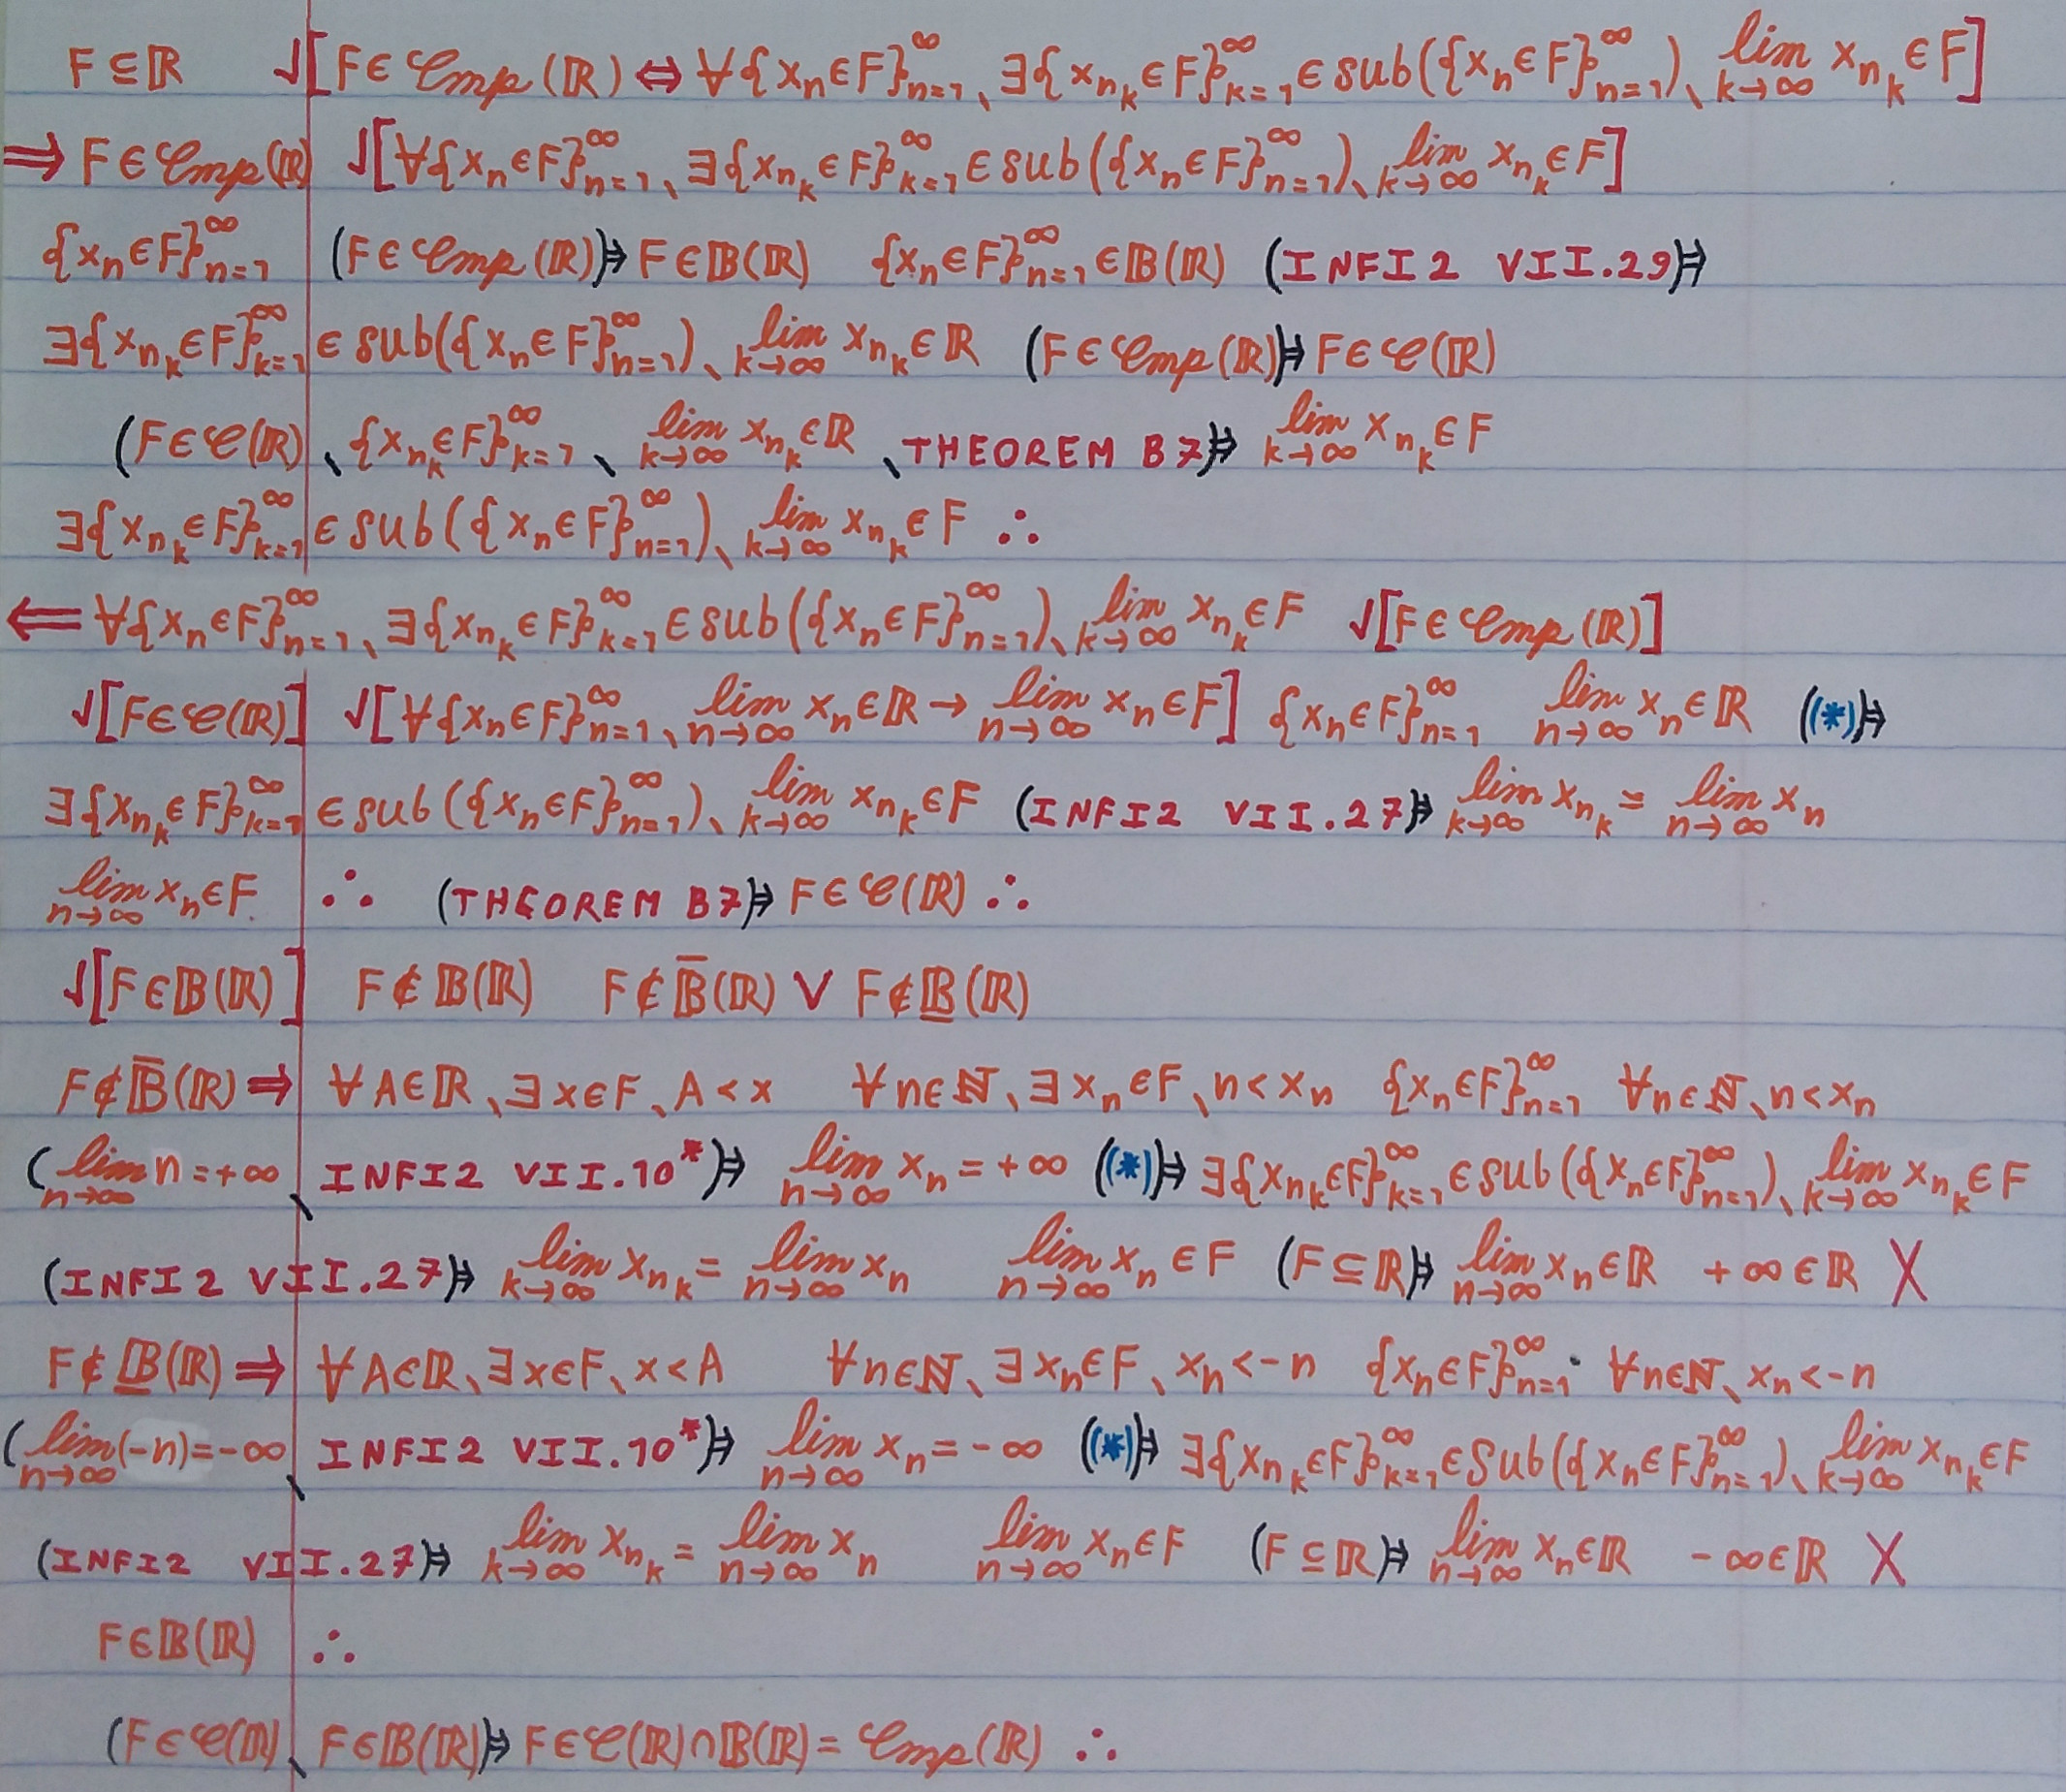 F⊆ℝ √[F∈𝒞mp(ℝ)⇔∀{xₙ∈F}ₙ₌₁^∞、∃{xₙₖ∈F}ₖ₌₁^∞∈sub({xₙ∈F}ₙ₌₁^∞)、lim k→∞ xₙₖ∈F]
⇒ F∈𝒞mp(ℝ) √[∀{xₙ∈F}ₙ₌₁^∞、∃{xₙₖ∈F}ₖ₌₁^∞∈sub({xₙ∈F}ₙ₌₁^∞)、lim k→∞ xₙₖ∈F]
{xₙ∈F}ₙ₌₁^∞ (F∈𝒞mp(ℝ))⊧> F∈𝔹(ℝ) {xₙ∈F}ₙ₌₁^∞∈𝔹(ℝ) (INFI2 VII.29)⊧>
∃{xₙₖ∈F}ₖ₌₁^∞∈sub({xₙ∈F}ₙ₌₁^∞)、lim k→∞ xₙₖ∈ℝ (F∈𝒞mp(ℝ))⊧> F∈𝒞(ℝ)
(F∈𝒞(ℝ)、{xₙₖ∈F}ₖ₌₁^∞、lim k→∞ xₙₖ∈ℝ、THEOREM B7)⊧> lim k→∞ xₙₖ∈F
∃{xₙₖ∈F}ₖ₌₁^∞∈sub({xₙ∈F}ₙ₌₁^∞)、lim k→∞ xₙₖ∈F ∴
⇐ ∀{xₙ∈F}ₙ₌₁^∞、∃{xₙₖ∈F}ₖ₌₁^∞∈sub({xₙ∈F}ₙ₌₁^∞)、lim k→∞ xₙₖ∈F √[F∈𝒞mp(ℝ)]
√[F∈𝒞(ℝ)] √[∀{xₙ∈F}ₙ₌₁^∞、lim n→∞ xₙ∈ℝ→lim n→∞ xₙ∈F] {xₙ∈F}ₙ₌₁^∞ lim n→∞ xₙ∈ℝ ((*))⊧>
∃{xₙₖ∈F}ₖ₌₁^∞∈sub({xₙ∈F}ₙ₌₁^∞)、lim k→∞ xₙₖ∈F (INFI2 VII.27)⊧> lim k→∞ xₙₖ = lim n→∞ xₙ
lim n→∞ xₙ∈F ∴ (THEOREM B7)⊧> F∈𝒞(ℝ) ∴
√[F∈𝔹(ℝ)] F∉𝔹(ℝ) F∉𝔹̅(ℝ) ∨ F∉𝔹̲(ℝ)
F∉𝔹̅(ℝ) ⇒ ∀A∈ℝ、∃x∈F、A<x ∀n∈ℕ、∃xₙ∈F、n<xₙ {xₙ∈F}ₙ₌₁^∞ ∀n∈ℕ、n<xₙ
(lim n→∞ n=+∞、INFI2 VII.10*)⊧> lim n→∞ xₙ=+∞ ((*))⊧> ∃{xₙₖ∈F}ₖ₌₁^∞∈sub({xₙ∈F}ₙ₌₁^∞)、lim k→∞ xₙₖ∈F
(INFI2 VII.27)⊧> lim k→∞ xₙₖ = lim n→∞ xₙ lim n→∞ xₙ∈F (F⊆ℝ)⊧> lim n→∞ xₙ∈ℝ +∞∈ℝ X
F∉𝔹̲(ℝ) ⇒ ∀A∈ℝ、∃x∈F、x<A ∀n∈ℕ、∃xₙ∈F、xₙ<-n {xₙ∈F}ₙ₌₁^∞ ∀n∈ℕ、xₙ<-n
(lim n→∞ (-n)=-∞、INFI2 VII.10*)⊧> lim n→∞ xₙ=-∞ ((*))⊧> ∃{xₙₖ∈F}ₖ₌₁^∞∈sub({xₙ∈F}ₙ₌₁^∞)、lim k→∞ xₙₖ∈F
(INFI2 VII.27)⊧> lim k→∞ xₙₖ = lim n→∞ xₙ lim n→∞ xₙ∈F (F⊆ℝ)⊧> lim n→∞ xₙ∈ℝ -∞∈ℝ X
F∈𝔹(ℝ) ∴
(F∈𝒞(ℝ)、F∈𝔹(ℝ))⊧> F∈𝒞(ℝ)∩𝔹(ℝ)=𝒞mp(ℝ) ∴